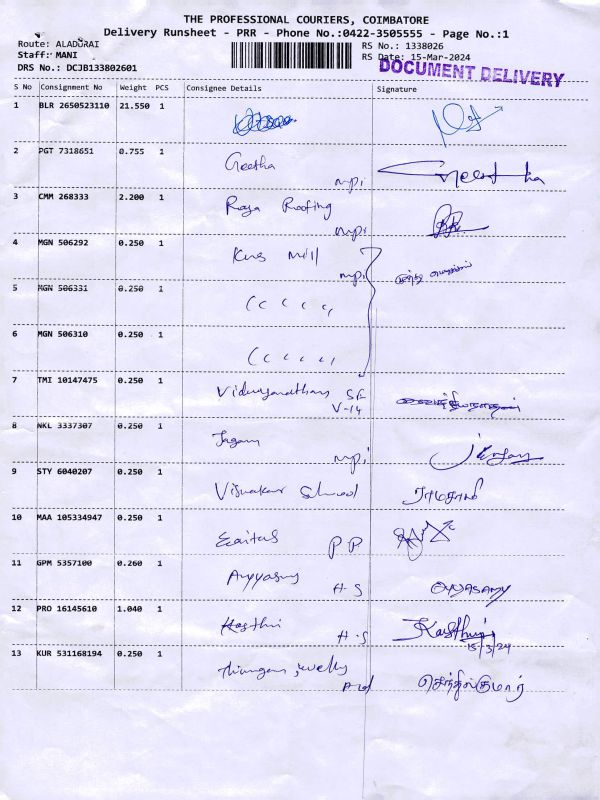 THE PROFESSIONAL COURIERS, COIMBATORE
Delivery Runsheet - PRR - Phone No.:0422-3505555 - Page No.:1
Route: ALADURAI
Staff: MANI
DRS No.: DCJB133802601
RS No.: 1338026
RS Date: 15-Mar-2024
DOCUMENT DELIVERY
S No Consignment No Weight PCS Consignee Details Signature
1 BLR 2650523110 21.550 1
2 PGT 7318651 0.755 1 Geetha mpi Geetha
3 CMM 268333 2.200 1 Raja Roofing mpi
4 MGN 506292 0.250 1 Mill mpi
5 MGN 506331 0.250 1
6 MGN 506310 0.250 1
7 TMI 10147475 0.250 1 Vidhuyanathan SF
V-14
8 NKL 3337307 0.250 1 Jagan mpi
9 STY 6040207 0.250 1 School
10 MAA 105334947 0.250 1 PP
11 GPM 5357100 0.260 1 Ayyasamy H-S AYYASAMY
12 PRO 16145610 1.040 1 Kasthuri H-S Kasthuri
15/3/24
13 KUR 531168194 0.250 1 செந்தில்குமார்